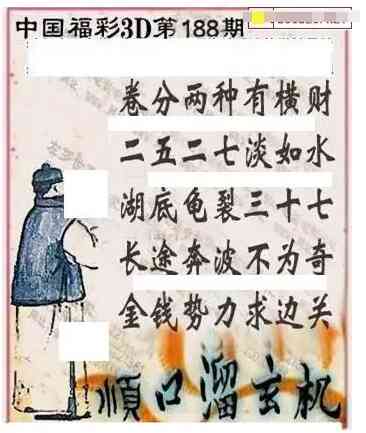 中国福彩3D第188期
卷分两种有横财
二五二七淡如水
湖底龟裂三十七
长途奔波不为奇
金钱势力求边关
顺口溜玄机